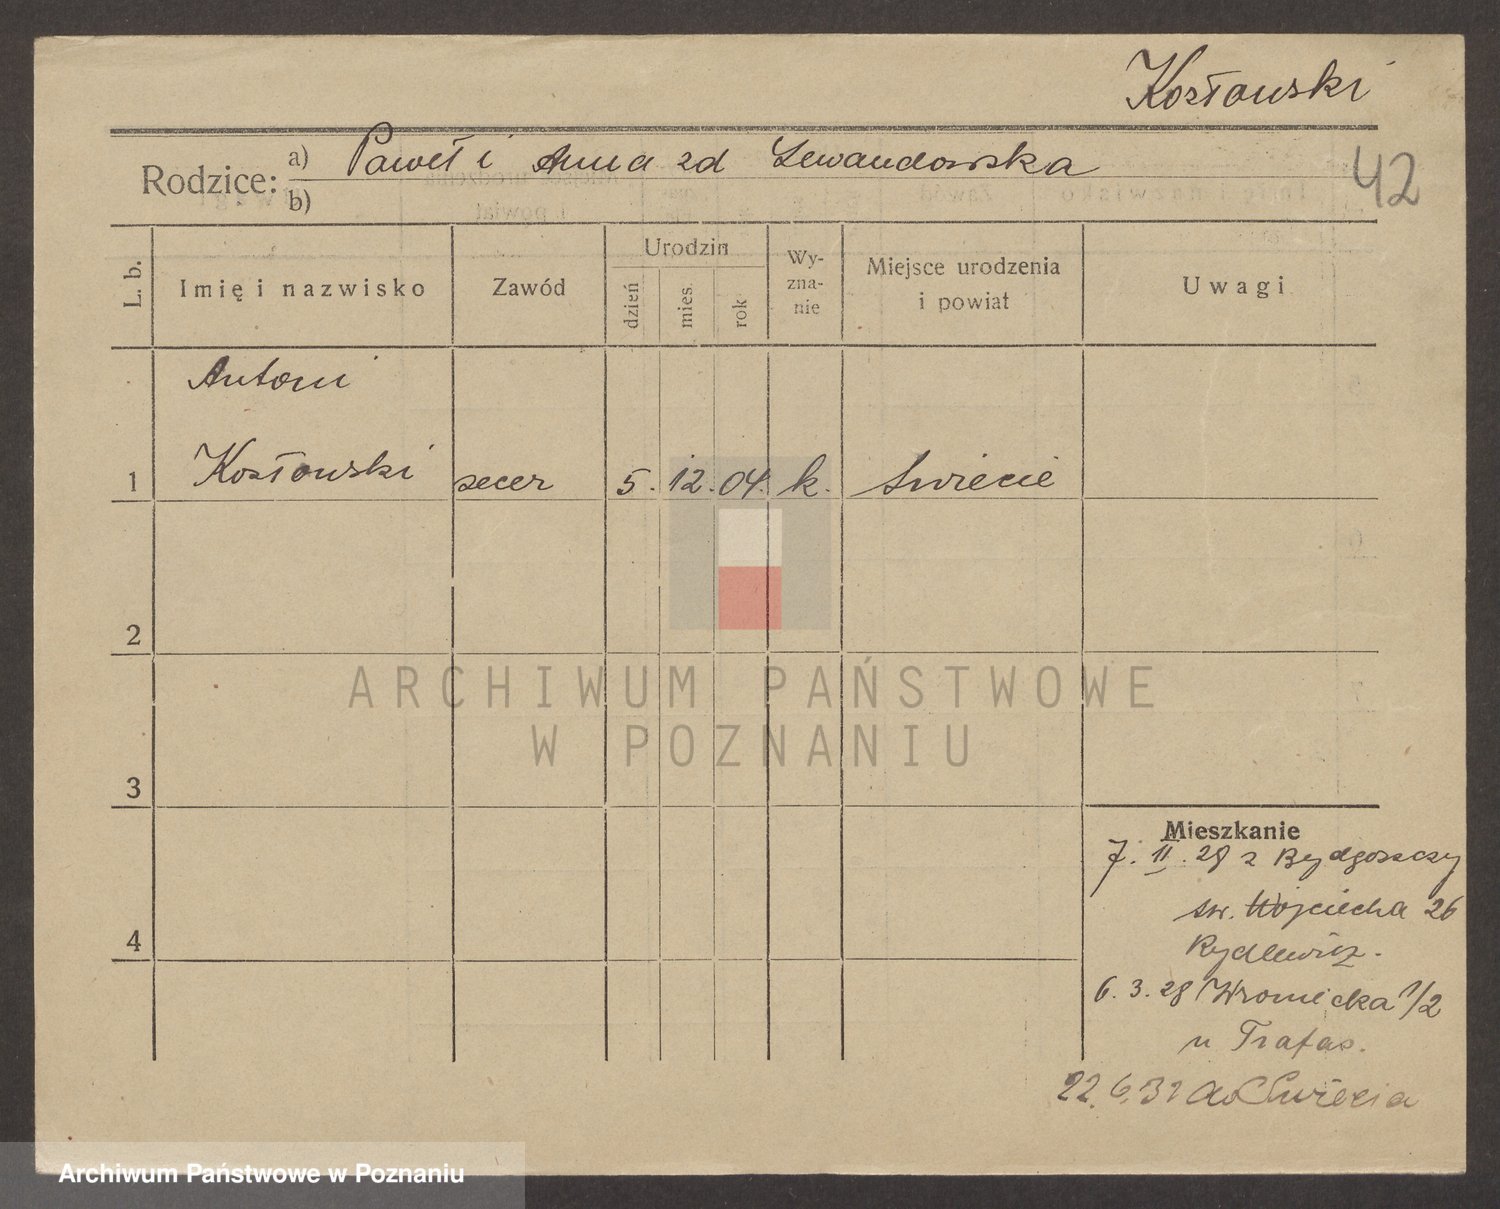 Kozłowski
Rodzice: a) Paweł i Anna zd Lewandowska
b)
42
L. b.
Imię i nazwisko
Zawód
Urodzin
dzień
mies.
rok
Wy-
zna-
nie
Miejsce urodzenia
i powiat
Uwagi
Antoni
1 Kozłowski zecer 5. 12. 04. k. Świecie
2
ARCHIWUM PAŃSTWOWE
W POZNANIU
3
Mieszkanie
7. II. 28 z Bydgoszczy
św. Wojciecha 26
4
Rydlewicz.
6. 3. 28 Wroniecka 1/2
u Trafas.
22.6.32 do Świecia
Archiwum Państwowe w Poznaniu